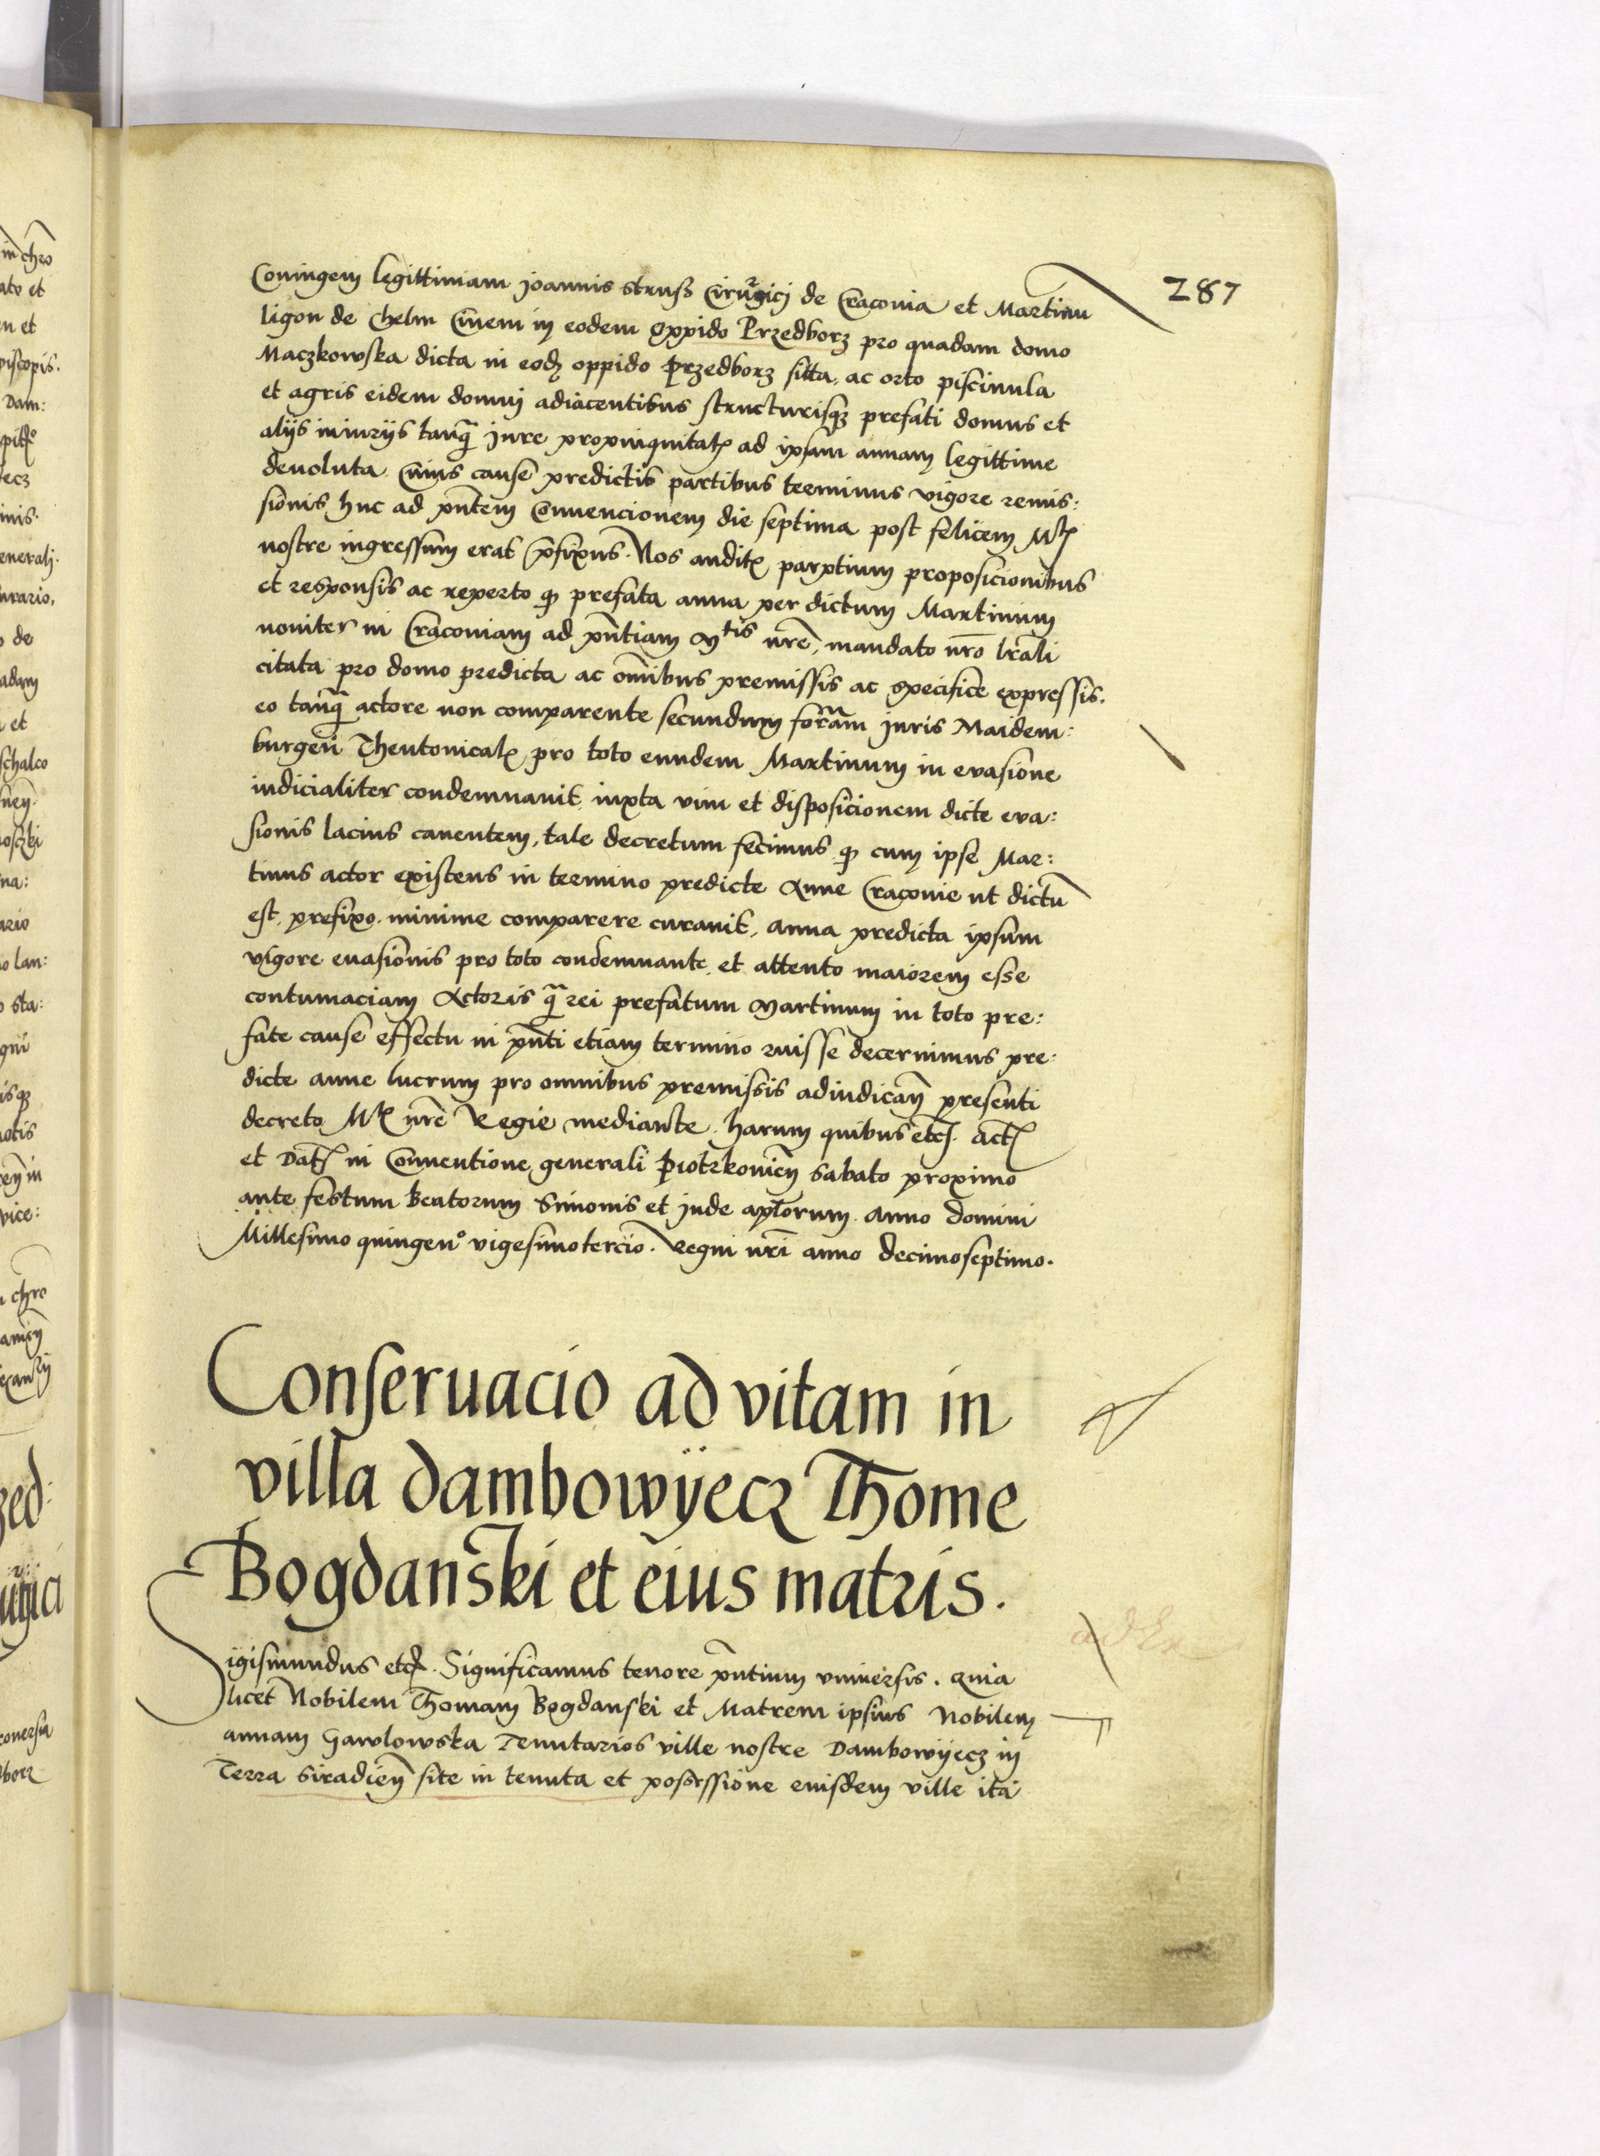 287
Coniugem legittimam Joannis struß Cirurgici de Craconia et Martinu
ligon de Chelm Ciuem in eodem oppido Przedborz pro quadam domo
Maczkowska dicta in eodz oppido Przedborz sitta, ac orto piscinula
et agris eidem domui adiacentibus structurisqz prefati domus et
alijs iniurijs tanq̃ Jure propinquitatꝭ ad ipsam annam legittime
deuoluta. Cuius cause predictis partibus terminus vigore remis:
sionis huc ad pñtem Conuencionem die septima post felicem Mtꝭ
nostre ingressum erat p̃fixus. Nos auditꝭ partium proposicionibus
et responsis ac reperto qz prefata anna per dictum Martinum
nouiter in Craconiam ad pñtiam Mtis nr̃e, mandato nr̃o lr̃ali
citata pro domo predicta ac om̃ibus premissis ac specifice expressis.
eo tanq̃ actore non comparente secundum formam Juris Maidem:
burgen̄ Theutonicalꝭ pro toto eundem Martinum in evasione
iudicialiter condemnauit iuxta vim et disposicionem dicte eva:
sionis lacius canentem, tale decretum fecimus qz cum ipse Mar:
tinus actor existens in termino predicte Anne Craconie ut dictū
est, prefixo. minime comparere curauit, anna predicta ipsum
vigore euasionis pro toto condemnante, et attento maiorem esse
contumaciam Actoris q̃ rei prefatum Martinum in toto pre:
fate cause effectu in pñti etiam termino ruisse decernimus pre:
dicte anne lucrum pro omnibus premissis adiudican̄ presenti
decreto Mtꝭ nr̃e Regie mediante. harum quibus etcꝭ. Actꝭ
et Datꝭ in Conuentione generali Piotrkouien̄ sabato proximo
ante festum Beatorum Simonis et Jude apl̃orum. Anno domini
Millesimo quingenº vigesimotercio. Regni nr̃i anno decimoseptimo.
Conseruacio ad vitam in
villa Dambowÿecz Thome
Bogdanski et eius matris.
Sigismundus etcꝭ. Significamus tenore p̃ntium vniuersis. Quia
licet Nobilem Thomam Bogdanski et Matrem ipsius Nobilem
annam Gawlowska Tenutarios ville nostre Dambowÿecz in
Terra Siradien̄ site in tenuta et possessione eiusdem ville ita